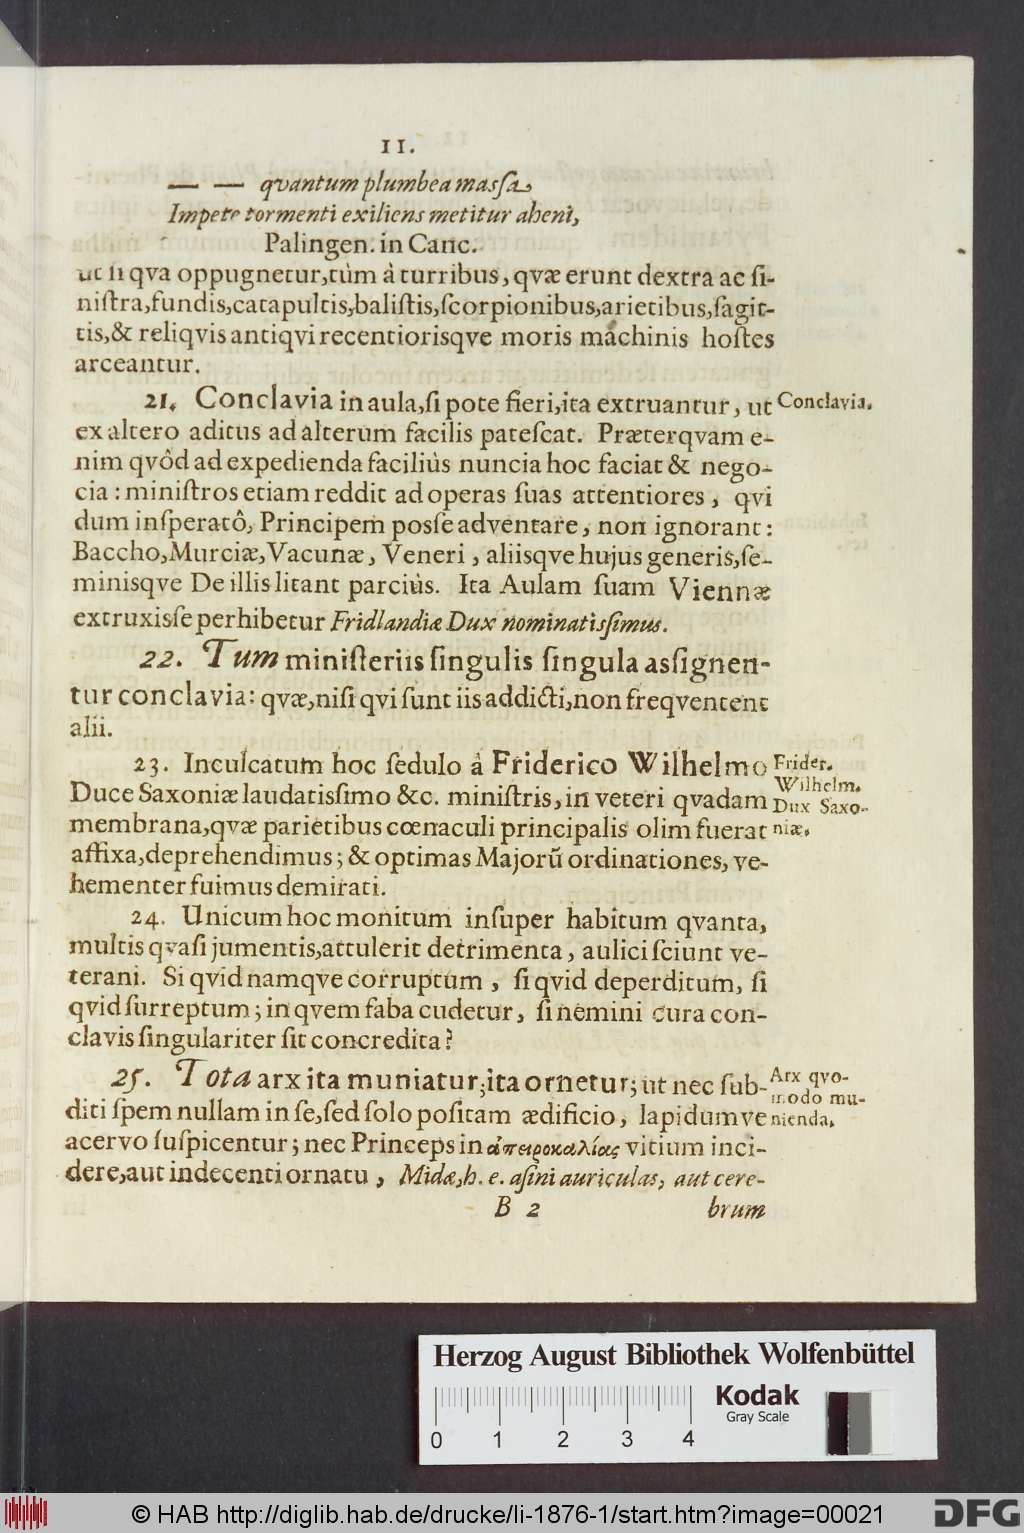 11.
— — qvantum plumbea maſſa
Impete tormenti exiliens metitur aheni,
Palingen. in Canc.
ut ſi qva oppugnetur, tùm à turribus, qvæ erunt dextra ac ſi-
niſtra, fundis, catapultis, baliſtis, ſcorpionibus, arietibus, ſagit-
tis, & reliqvis antiqvi recentiorisqve moris machinis hoſtes
arceantur.
21. Conclavia in aula, ſi pote fieri, ita extruantur, ut
Conclavia.
ex altero aditus ad alterum facilis pateſcat. Præterqvam e-
nim qvôd ad expedienda faciliùs nuncia hoc faciat & nego-
cia: miniſtros etiam reddit ad operas ſuas attentiores, qvi
dum inſperatô, Principem poſſe adventare, non ignorant:
Baccho, Murciæ, Vacunæ, Veneri, aliisqve hujus generis, ſe-
minisqve De illis litant parciùs. Ita Aulam ſuam Viennæ
extruxisſe perhibetur Fridlandiæ Dux nominatisſimus.
22. Tum miniſteriis ſingulis ſingula asſignen-
tur conclavia: qvæ, niſi qvi ſunt iis addicti, non freqventent
alii.
23. Inculcatum hoc ſedulo à Friderico Wilhelmo
Duce Saxoniæ laudatisſimo &c. miniſtris, in veteri qvadam
membrana, qvæ parietibus cœnaculi principalis olim fuerat
affixa, deprehendimus; & optimas Majorũ ordinationes, ve-
hementer fuimus demirati.
Frider.
Wilhelm.
Dux Saxo-
niæ.
24. Unicum hoc monitum inſuper habitum qvanta,
multis qvaſi jumentis, attulerit detrimenta, aulici ſciunt ve-
terani. Si qvid namqve corruptum, ſi qvid deperditum, ſi
qvid ſurreptum; in qvem faba cudetur, ſi nemini cura con-
clavis ſingulariter ſit concredita?
25. Tota arx ita muniatur; ita ornetur; ut nec ſub-
diti ſpem nullam in ſe, ſed ſolo poſitam ædificio, lapidum ve
acervo ſuſpicentur; nec Princeps in ἀπειροκαλίας vitium inci-
dere, aut indecenti ornatu, Midæ, h. e. aſini auriculas, aut cere-
Arx qvo-
modo mu-
nienda.
B 2
brum
Herzog August Bibliothek Wolfenbüttel
0 1 2 3 4
Kodak
Gray Scale
© HAB http://diglib.hab.de/drucke/li-1876-1/start.htm?image=00021
DFG